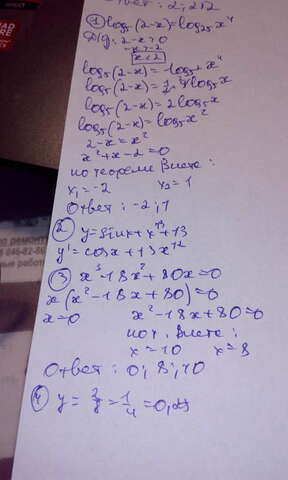 Ответ: 2; 212
① log₅(2-x)=log₂₅x⁴
О/з: 2-x>0
-x>-2
x<2
log₅(2-x)=log₅²x⁴
log₅(2-x)=½·4log₅x
log₅(2-x)=2log₅x
log₅(2-x)=log₅x²
2-x=x²
x²+x-2=0
по теореме Виета:
x₁=-2 x₂=1
Ответ: -2; 1
② y=sinx+x¹³+13
y'=cosx+13x¹²
③ x³-18x²+80x=0
x(x²-18x+80)=0
x=0 x²-18x+80=0
по т. Виета:
x=10 x=8
Ответ: 0; 8; 10
④ y=2/8=1/4=0,25